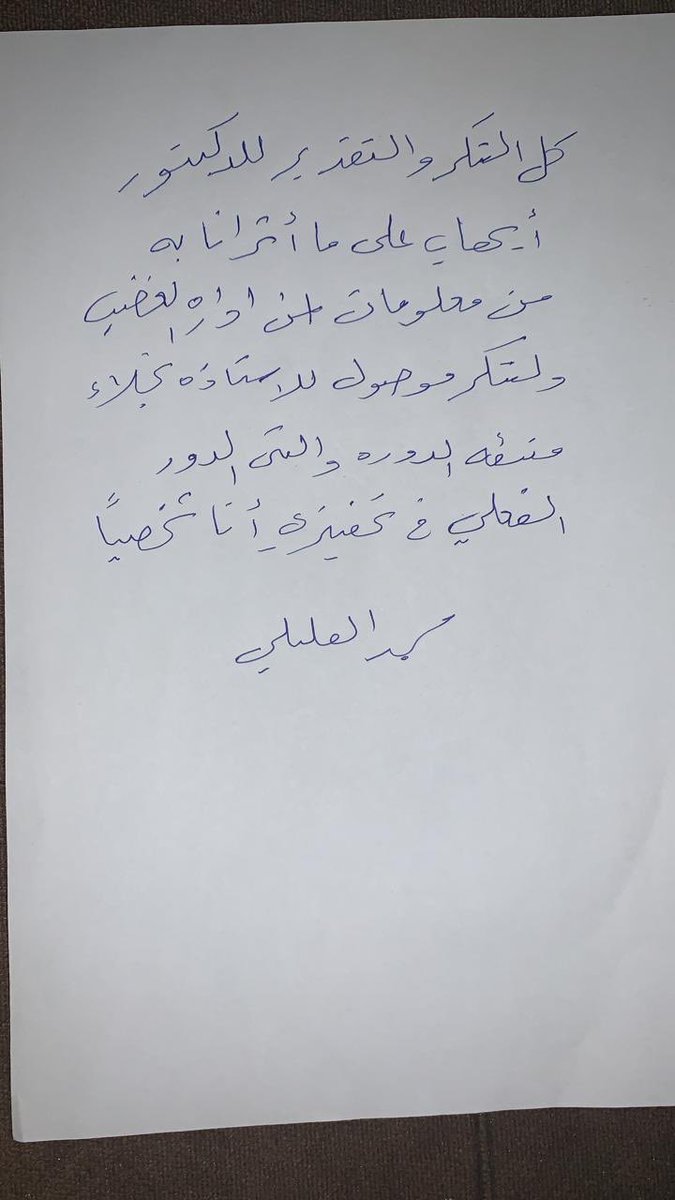 كل الشكر والتقدير للدكتور
أيهاب على ما أثرانا به
من معلومات عن اداره الغضب
ولشكر موصول للاستاذه نجلاء
منسقه الدوره والتى الدور
الفعلي في تحفيزي أنا شخصياً
محمد العليلي